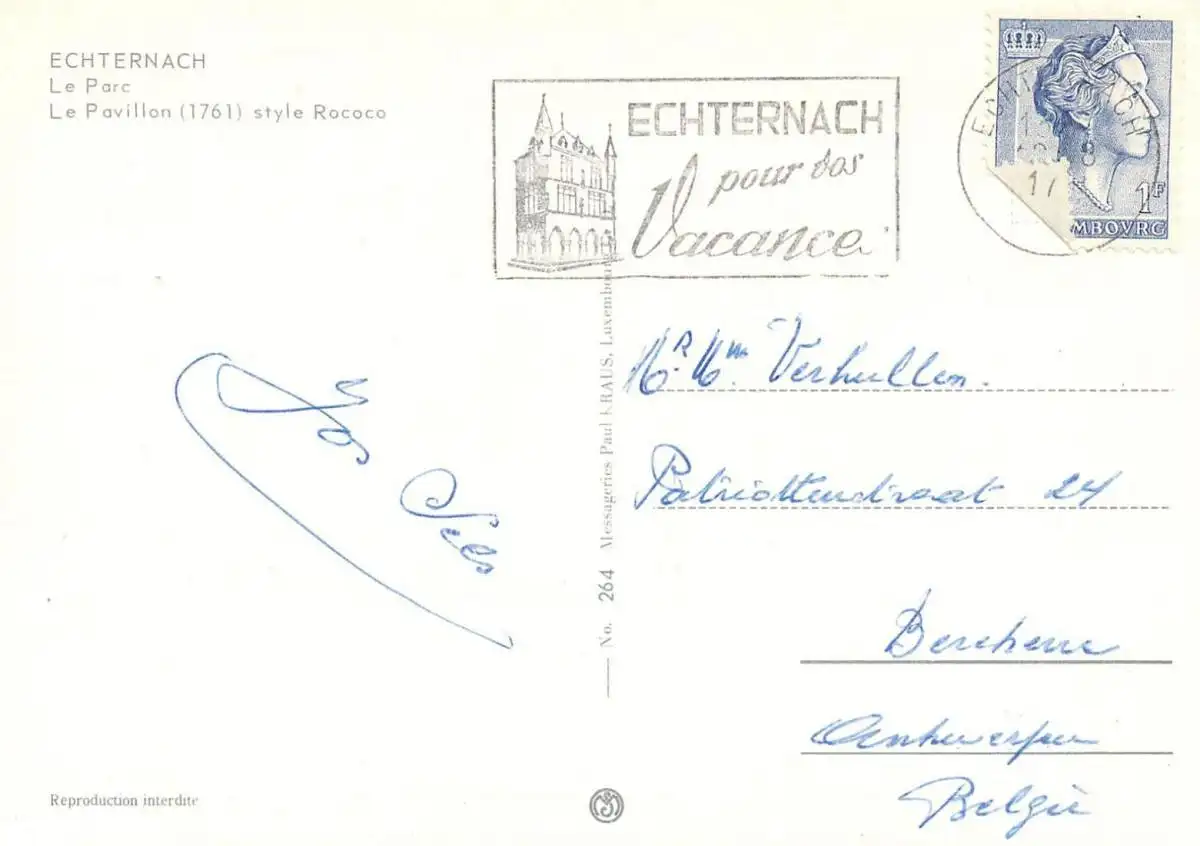 ECHTERNACH
Le Parc
Le Pavillon (1761) style Rococo
ECHTERNACH
pour vos
Vacances
ECHTERNACH
17
1F
MBOVRG
Mr. Mm. Verhullen.
Patriottenstraat 24
Berchem
Antwerpen
België
Jos
No. 264 Messageries Paul KRAUS, Luxembourg
Reproduction interdite